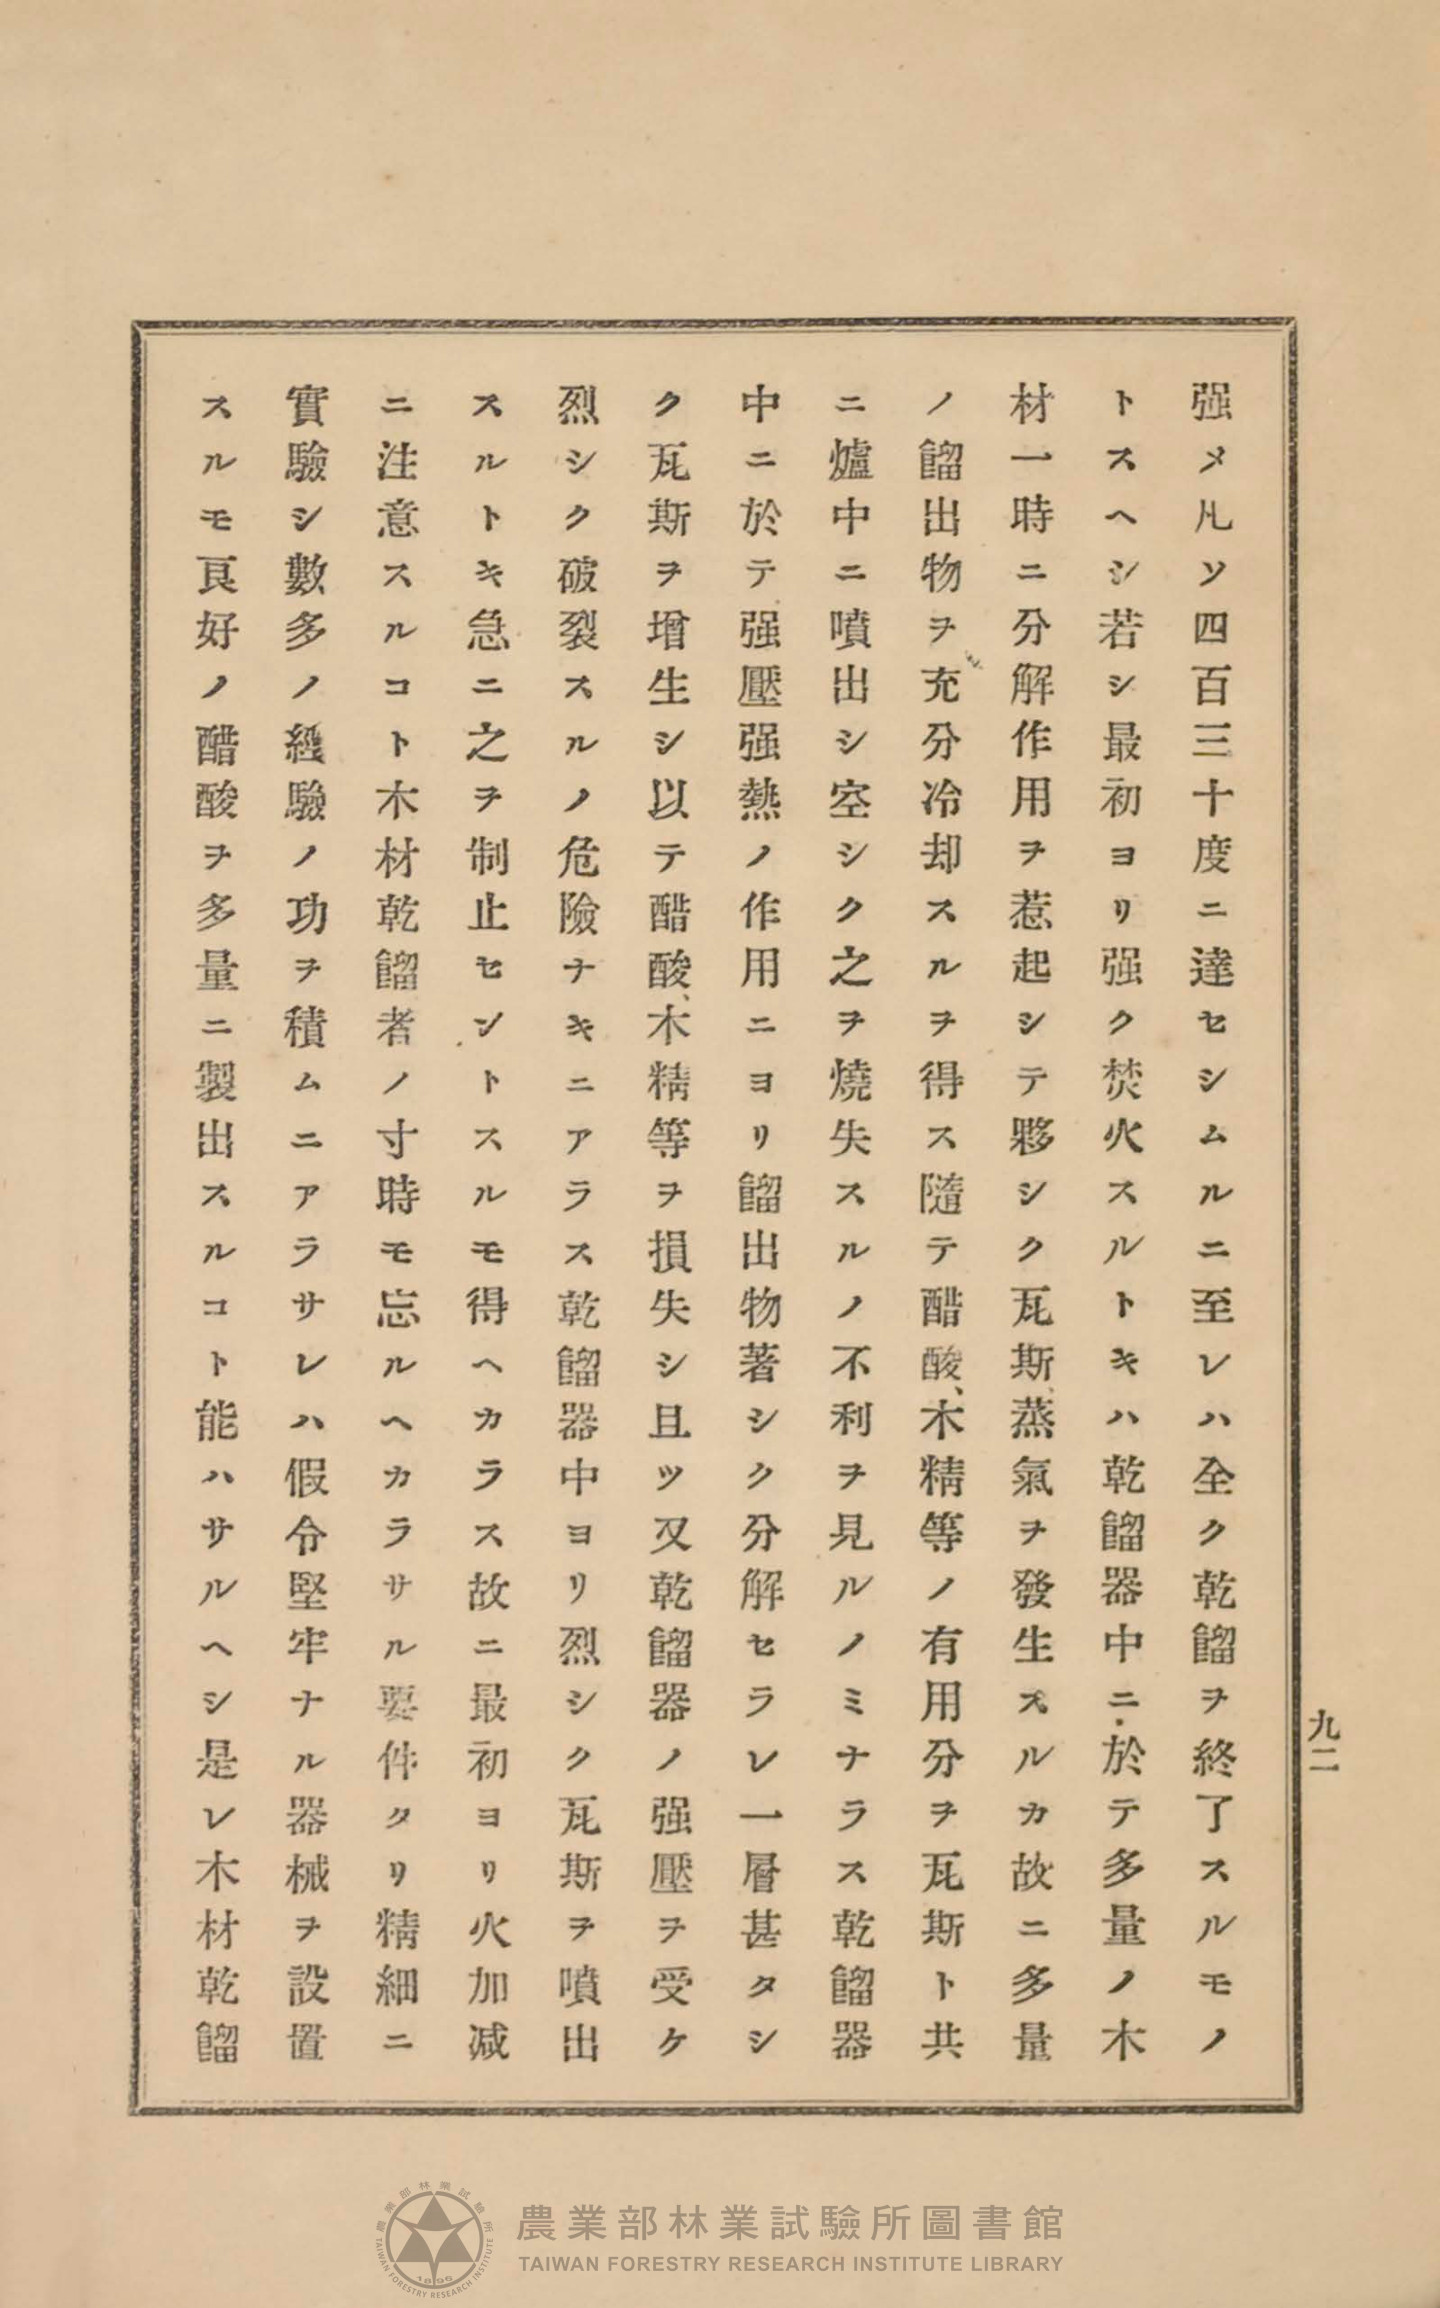 强メ凡ソ四百三十度ニ達セシムルニ至レハ全ク乾餾ヲ終了スルモノ
トスヘシ若シ最初ヨリ强ク焚火スルトキハ乾餾器中ニ於テ多量ノ木
材一時ニ分解作用ヲ惹起シテ夥シク瓦斯、蒸氣ヲ發生スルカ故ニ多量
ノ餾出物ヲ充分冷却スルヲ得ス隨テ醋酸、木精等ノ有用分ヲ瓦斯ト共
ニ爐中ニ噴出シ空シク之ヲ燒失スルノ不利ヲ見ルノミナラス乾餾器
中ニ於テ强壓强熱ノ作用ニヨリ餾出物著シク分解セラレ一層甚タシ
ク瓦斯ヲ增生シ以テ醋酸、木精等ヲ損失シ且ツ又乾餾器ノ强壓ヲ受ケ
烈シク破裂スルノ危險ナキニアラス乾餾器中ヨリ烈シク瓦斯ヲ噴出
スルトキ急ニ之ヲ制止セントスルモ得ヘカラス故ニ最初ヨリ火加减
ニ注意スルコト木材乾餾者ノ寸時モ忘ルヘカラサル要件タリ精細ニ
實驗シ數多ノ經驗ノ功ヲ積ムニアラサレハ假令堅牢ナル器械ヲ設置
スルモ良好ノ醋酸ヲ多量ニ製出スルコト能ハサルヘシ是レ木材乾餾
九二
農業部林業試驗所圖書館
TAIWAN FORESTRY RESEARCH INSTITUTE LIBRARY
農業部林業試驗所
TAIWAN FORESTRY RESEARCH INSTITUTE
1896